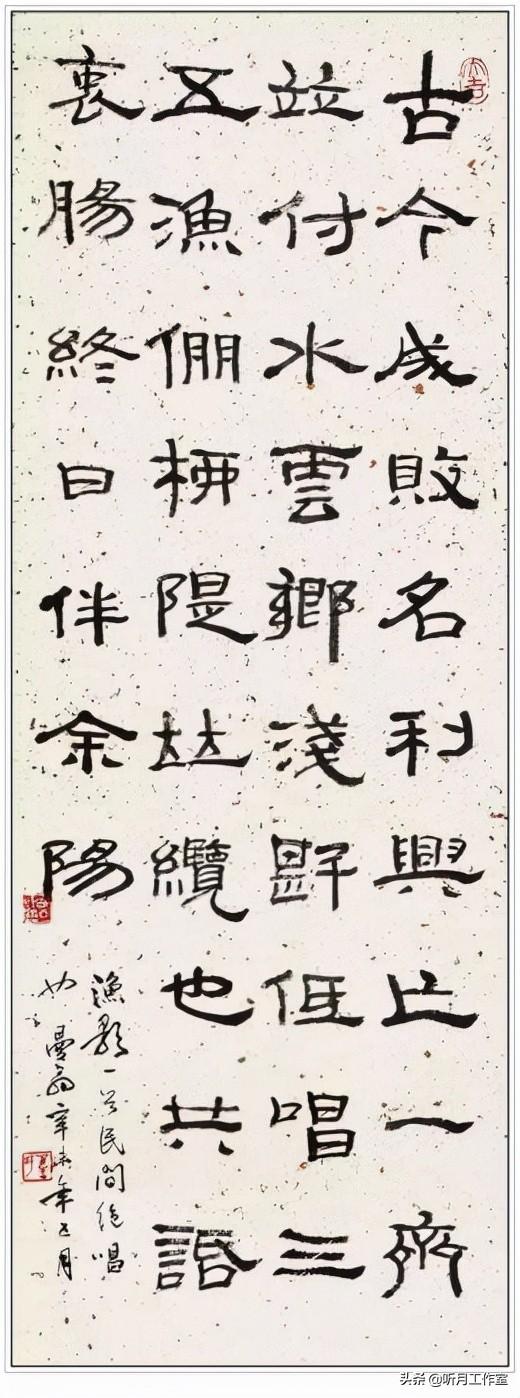 古今成敗名利興亡一齊
竝付水雲鄉淺斟低唱三
五漁倗栖隄竝纜也共話
衷腸終日伴余陽
漁歌一首民間絕唱
也曼翁辛未年五月
头条 @听月工作室